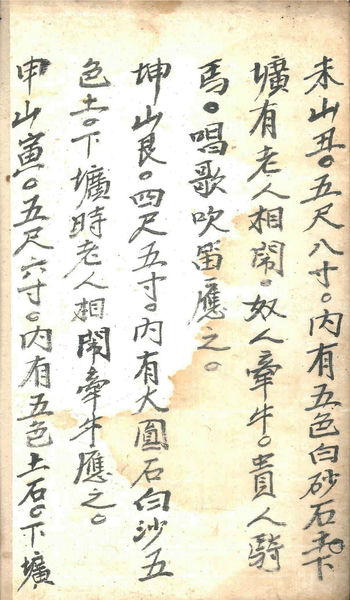 未山丑。五尺八寸。內有五色白砂石。下
壙有老人相鬧。奴人牽牛。貴人騎
馬。唱歌吹笛應之。
坤山艮。四尺五寸。內有大圓石白沙五
色土。下壙時老人相鬧牽牛應之。
申山寅。五尺六寸。內有五色土石。下壙